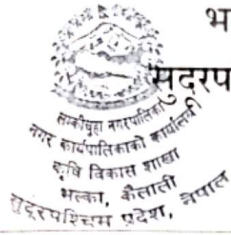 भ
सुदूरप
लम्कीचुहा नगरपालिका
नगर कार्यपालिकाको कार्यालय
कृषि विकास शाखा
भल्का, कैलाली
सुदूरपश्चिम प्रदेश, नेपाल